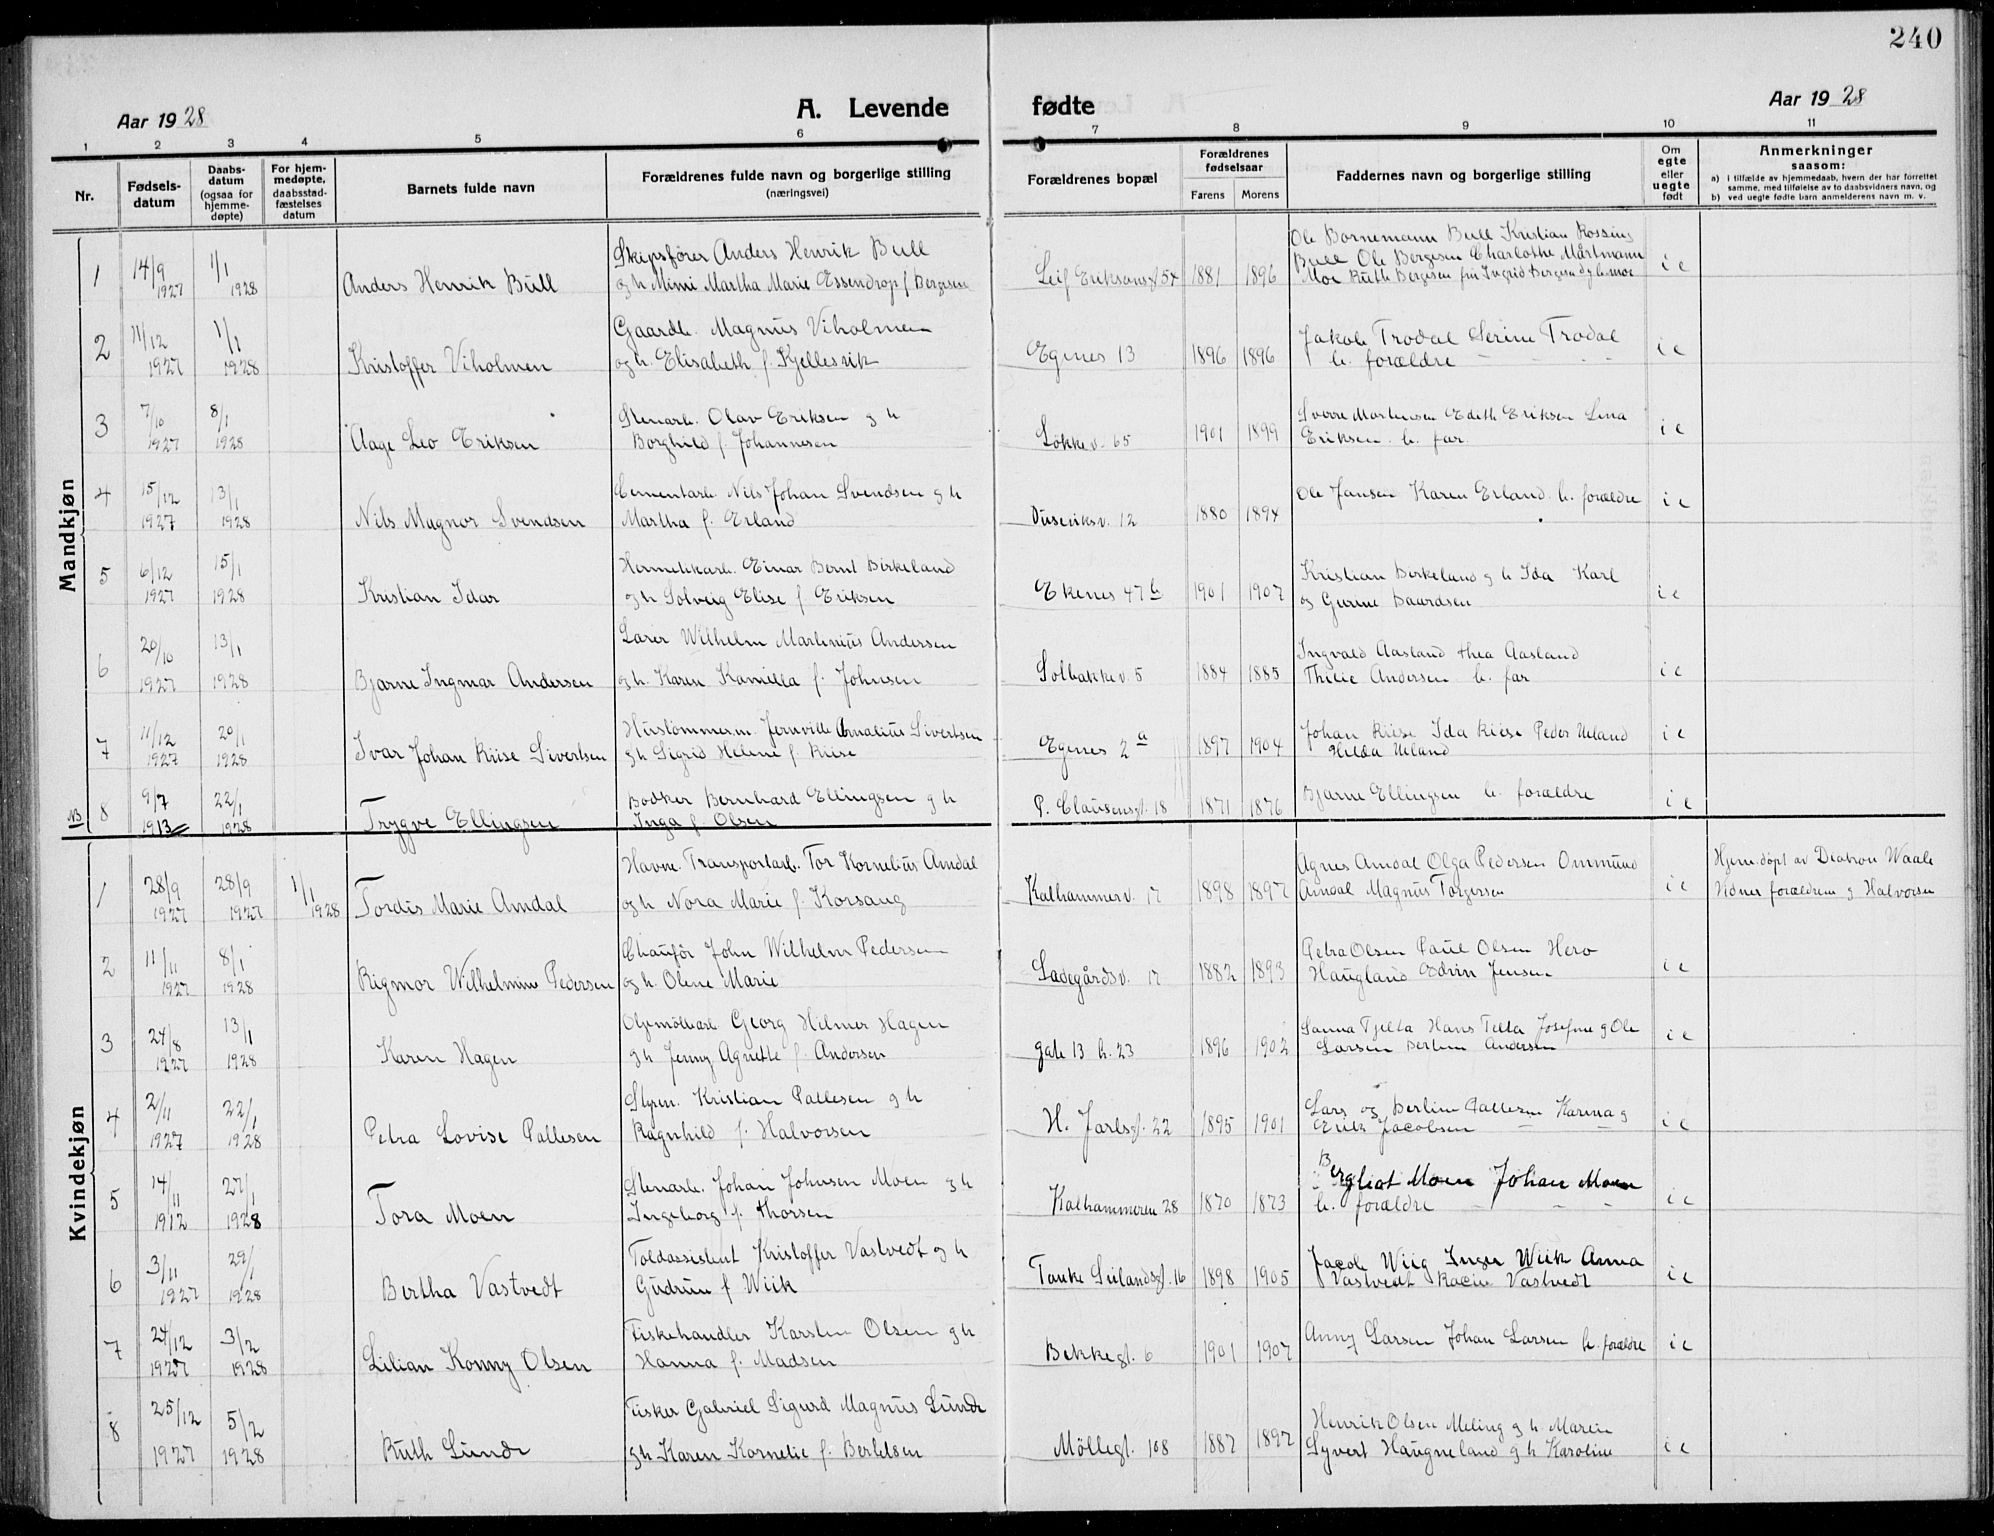 240
Aar 1928
A. Levende fødte
Aar 1928
1 2 3 4 5 6 7 8 9 10 11
Nr.
Fødsels-
datum
Daabs-
datum
(ogsaa for
hjemme-
døpte)
For hjem-
medøpte,
daabsstad-
fæstelses
datum
Barnets fulde navn
Forældrenes fulde navn og borgerlige stilling
(næringsvei)
Forældrenes bopæl
Forældrenes
fødselsaar
Farens Morens
Faddernes navn og borgerlige stilling
Om
egte
eller
uegte
født
Anmerkninger
saasom:
a) i tilfælde av hjemmedaab, hvem der har forrettet
samme, med tilføielse av to daabsvidners navn, og
b) ved uegte fødte barn anmelderens navn m. v.
Mandkjøn
1 14/9 1927 1/1 1928
Anders Henrik Bull
Skipsfører Anders Henrik Bull
og h Mimi Martha Marie Essendrop f Bergesen
Leif Eriksonsgt 54 1881 1896
Ole Bornemann Bull Kristian Rossing
Bull Ole Bergesen Charlothe Mårtmann
Moe Ruth Bergesen frk Ingrid Bergesen
i e
2 11/12 1927 1/1 1928
Kristoffer Viholmen
Gaardb. Magnus Viholmen
og h. Elisabeth f. Kjellesvik
Egenes 13 1896 1896
Jakob Trodal Serine Trodal
b. forældre
i e
3 7/10 1927 8/1 1928
Aage Leo Eriksen
Stenarb. Olav Eriksen g h
Borghild f. Johannesen
Løkkev. 65 1901 1899
Sverre Mortensen Edith Eriksen Lina
Eriksen b. far.
i e
4 15/12 1927 13/1 1928
Nils Magnor Svendsen
Cementarb. Nils Johan Svendsen g h
Martha f. Erland
Duseviksv. 12 1880 1894
Ole Jansen Karen Erland b. forældre
i e
5 6/12 1927 15/1 1928
Kristian Idar
Hermetikkarb. Einar Bernt Birkeland
og h Solveig Elise f Eriksen
Ekenes 47 b 1901 1907
Kristian Birkeland g h Ida Karl
og Gurine Baardsen
i e
6 20/10 1927 13/1 1928
Bjarne Ingmar Andersen
Larer Wilhelm Martinius Andersen
g h. Karen Kamilla f. Johnsen
Solbakkev. 5 1884 1885
Ingvald Aasland Thea Aasland
Thilie Andersen b. far
i e
7 11/12 1927 20/1 1928
Ivar Johan Riise Sivertsen
Hustømmerm. Jernville Cornelius Sivertsen
g h Sigrid Helene f. Riise
Egenes 2 a 1897 1904
Johan Riise Ida Riise Peder Ueland
Hilda Ueland
i e
NB 8 9/7 1913 22/1 1928
Trygve Ellingsen
Bødker Bernhard Ellingsen g h
Inga f. Olsen
P. Clausensgt. 18 1871 1876
Bjarne Ellingsen b. forældre
i e
Kvindekjøn
1 28/9 1927 28/9 1927 1/1 1928
Tordis Marie Amdal
Havne Transportarb. Tor Kornelius Amdal
og h Nora Marie f. Korsang
Kalhammerv. 17 1898 1897
Agnes Amdal Olga Pedersen Ommund
Amdal Magnus Torgersen
i e
Hjem.døpt av Diakon Waale
Vidner forældrene g Halvorsen
2 11/11 1927 8/1 1928
Rigmor Wilhelmine Pedersen
Chaufør John Wilhelm Pedersen
og h. Olene Marie
Ladegårdsv. 17 1882 1893
Petra Olsen Paul Olsen Hero
Haugland Edvin Jensen
i e
3 24/8 1927 13/1 1928
Karen Hagen
Oljemøllearb Georg Hilmer Hagen
g h Jenny Agnethe f. Andersen
gate 13 h. 23 1896 1902
Sanna Tjelta Hans Tjelta Josefine g Ole
Larsen Bertine Andersen
i e
4 2/11 1927 22/1 1928
Petra Lovise Pallesen
Styrm. Kristian Pallesen g h
Ragnhild f. Halvorsen
H. Jarlsgt. 22 1895 1901
Lars og Berline Pallesen Karina g
Erik Jacobsen
i e
5 14/11 1912 27/1 1928
Tora Moen
Stenarb. Johan Johnsen Moen g h
Ingeborg f. Thorsen
Kalhammeren 28 1870 1873
Bergliot Moen Johan Moen
b. forældre
i e
6 3/11 1927 29/1 1928
Bertha Vastvedt
Toldassistent Kristoffer Vastvedt g h
Gudrun f Wiik
Tanke Svilandsgt. 16 1898 1905
Jacob Wiig Inger Wiik Anna
Vastvedt Racin Vastvedt
i e
7 24/12 1927 3/2 1928
Lilian Konny Olsen
Fiskehandler Karsten Olsen g h
Hanna f. Madsen
Bekkegt. 6 1901 1907
Anny Larsen Johan Larsen b. forældre
i e
8 25/12 1927 5/2 1928
Ruth Lunde
Fisker Gabriel Sigurd Magnus Lunde
g h Karen Kornelie f. Bertelsen
Møllegt. 108 1887 1897
Henrik Olsen Meling g h. Maren
Syvert Haugneland g h Karoline
i e